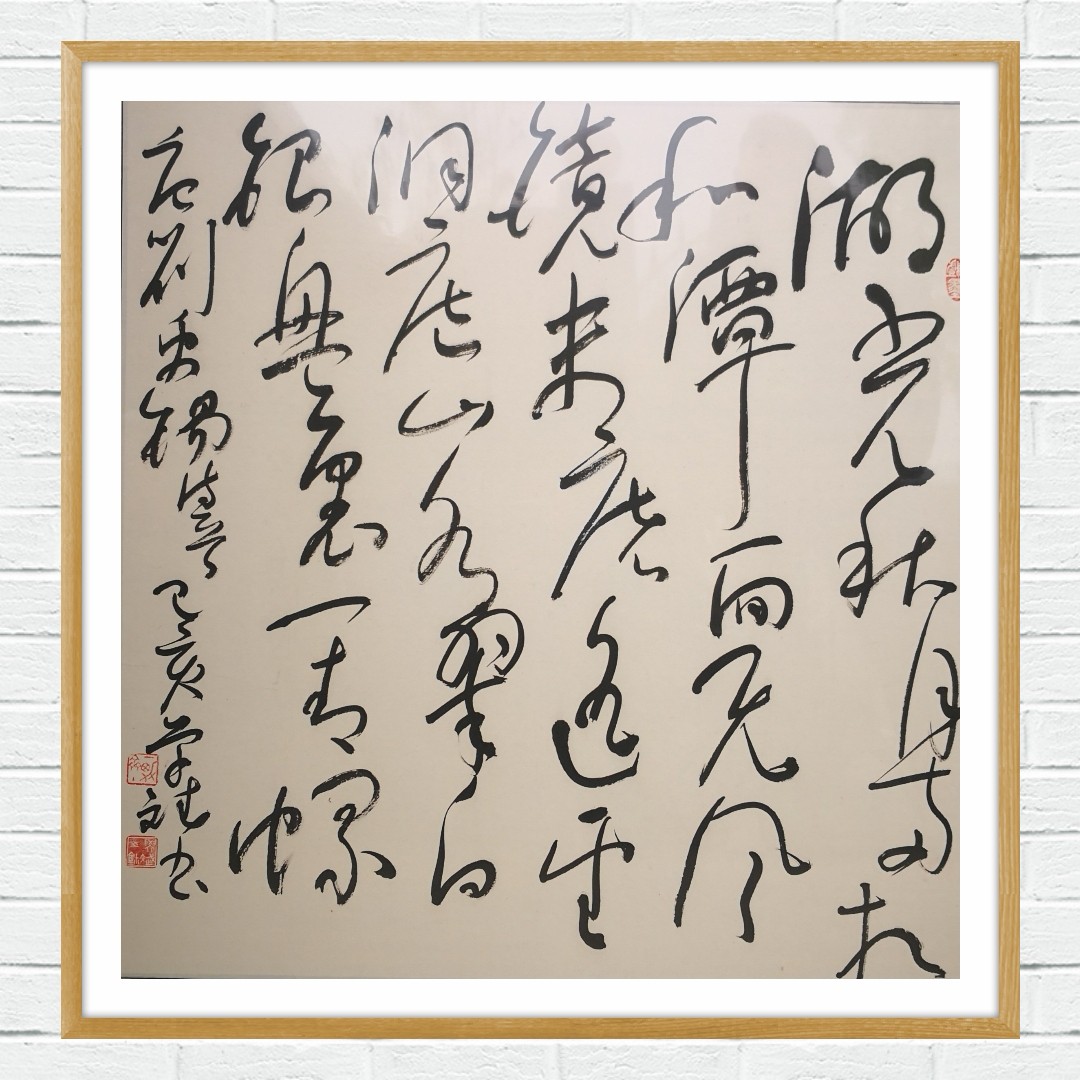 湖光秋月两相
和潭面无风
镜未磨遥望
洞庭山水翠白
银盘里一青螺
唐刘禹锡诗 己亥 书